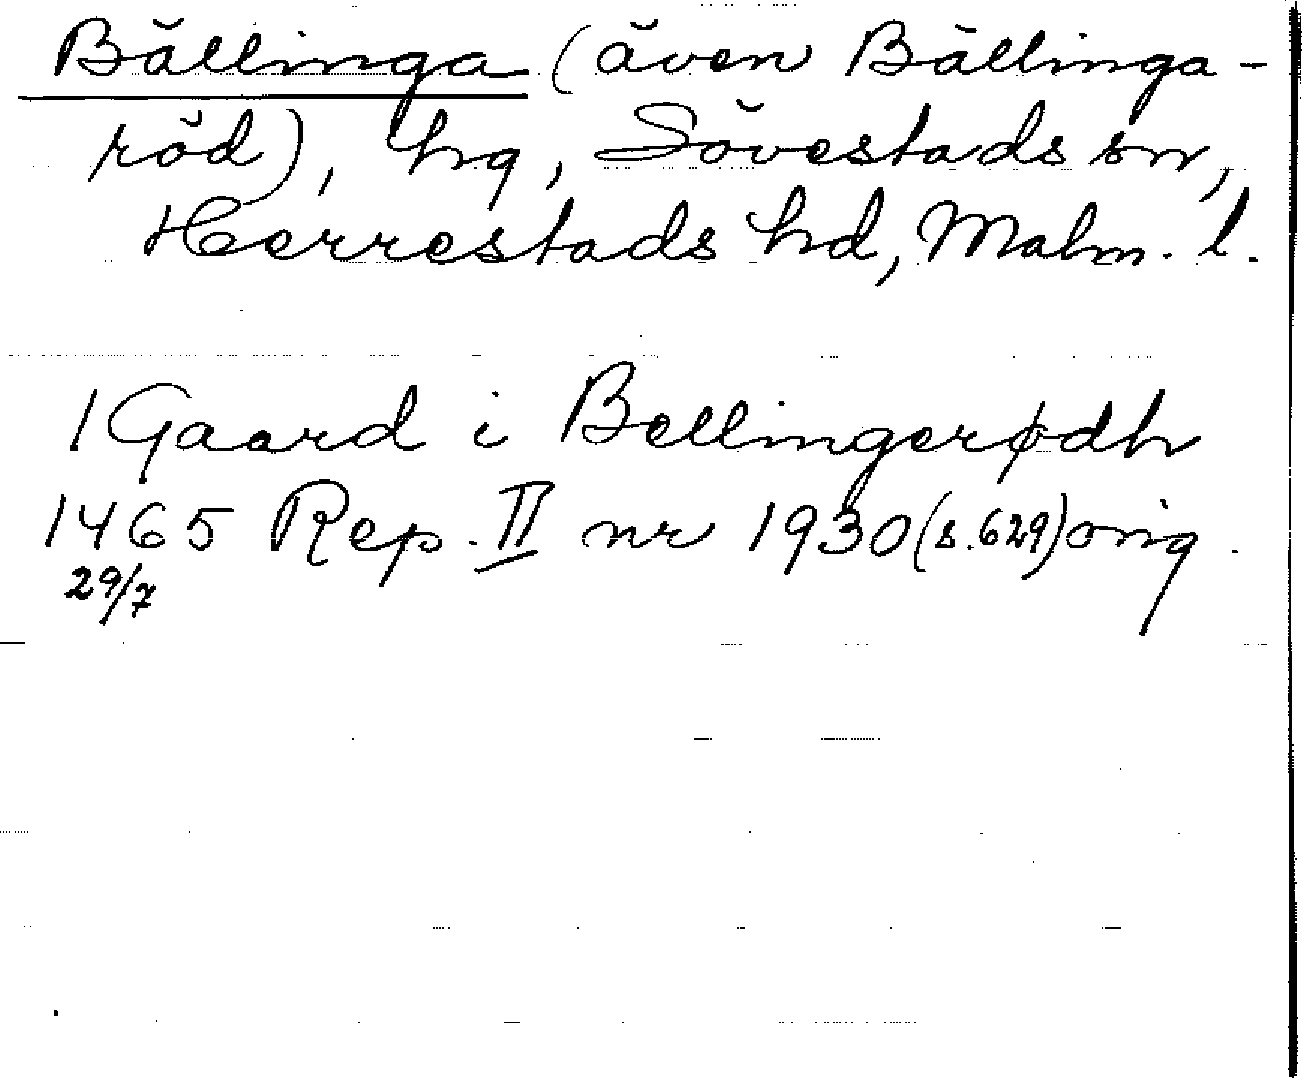 Bällinga (även Bällinga-
röd), hg, Sövestads sn,
Herrestads hd, Malm. l.
1 Gaard i Bellingerødh
1465 Rep. II nr 1930 (s. 629) orig.
29/7